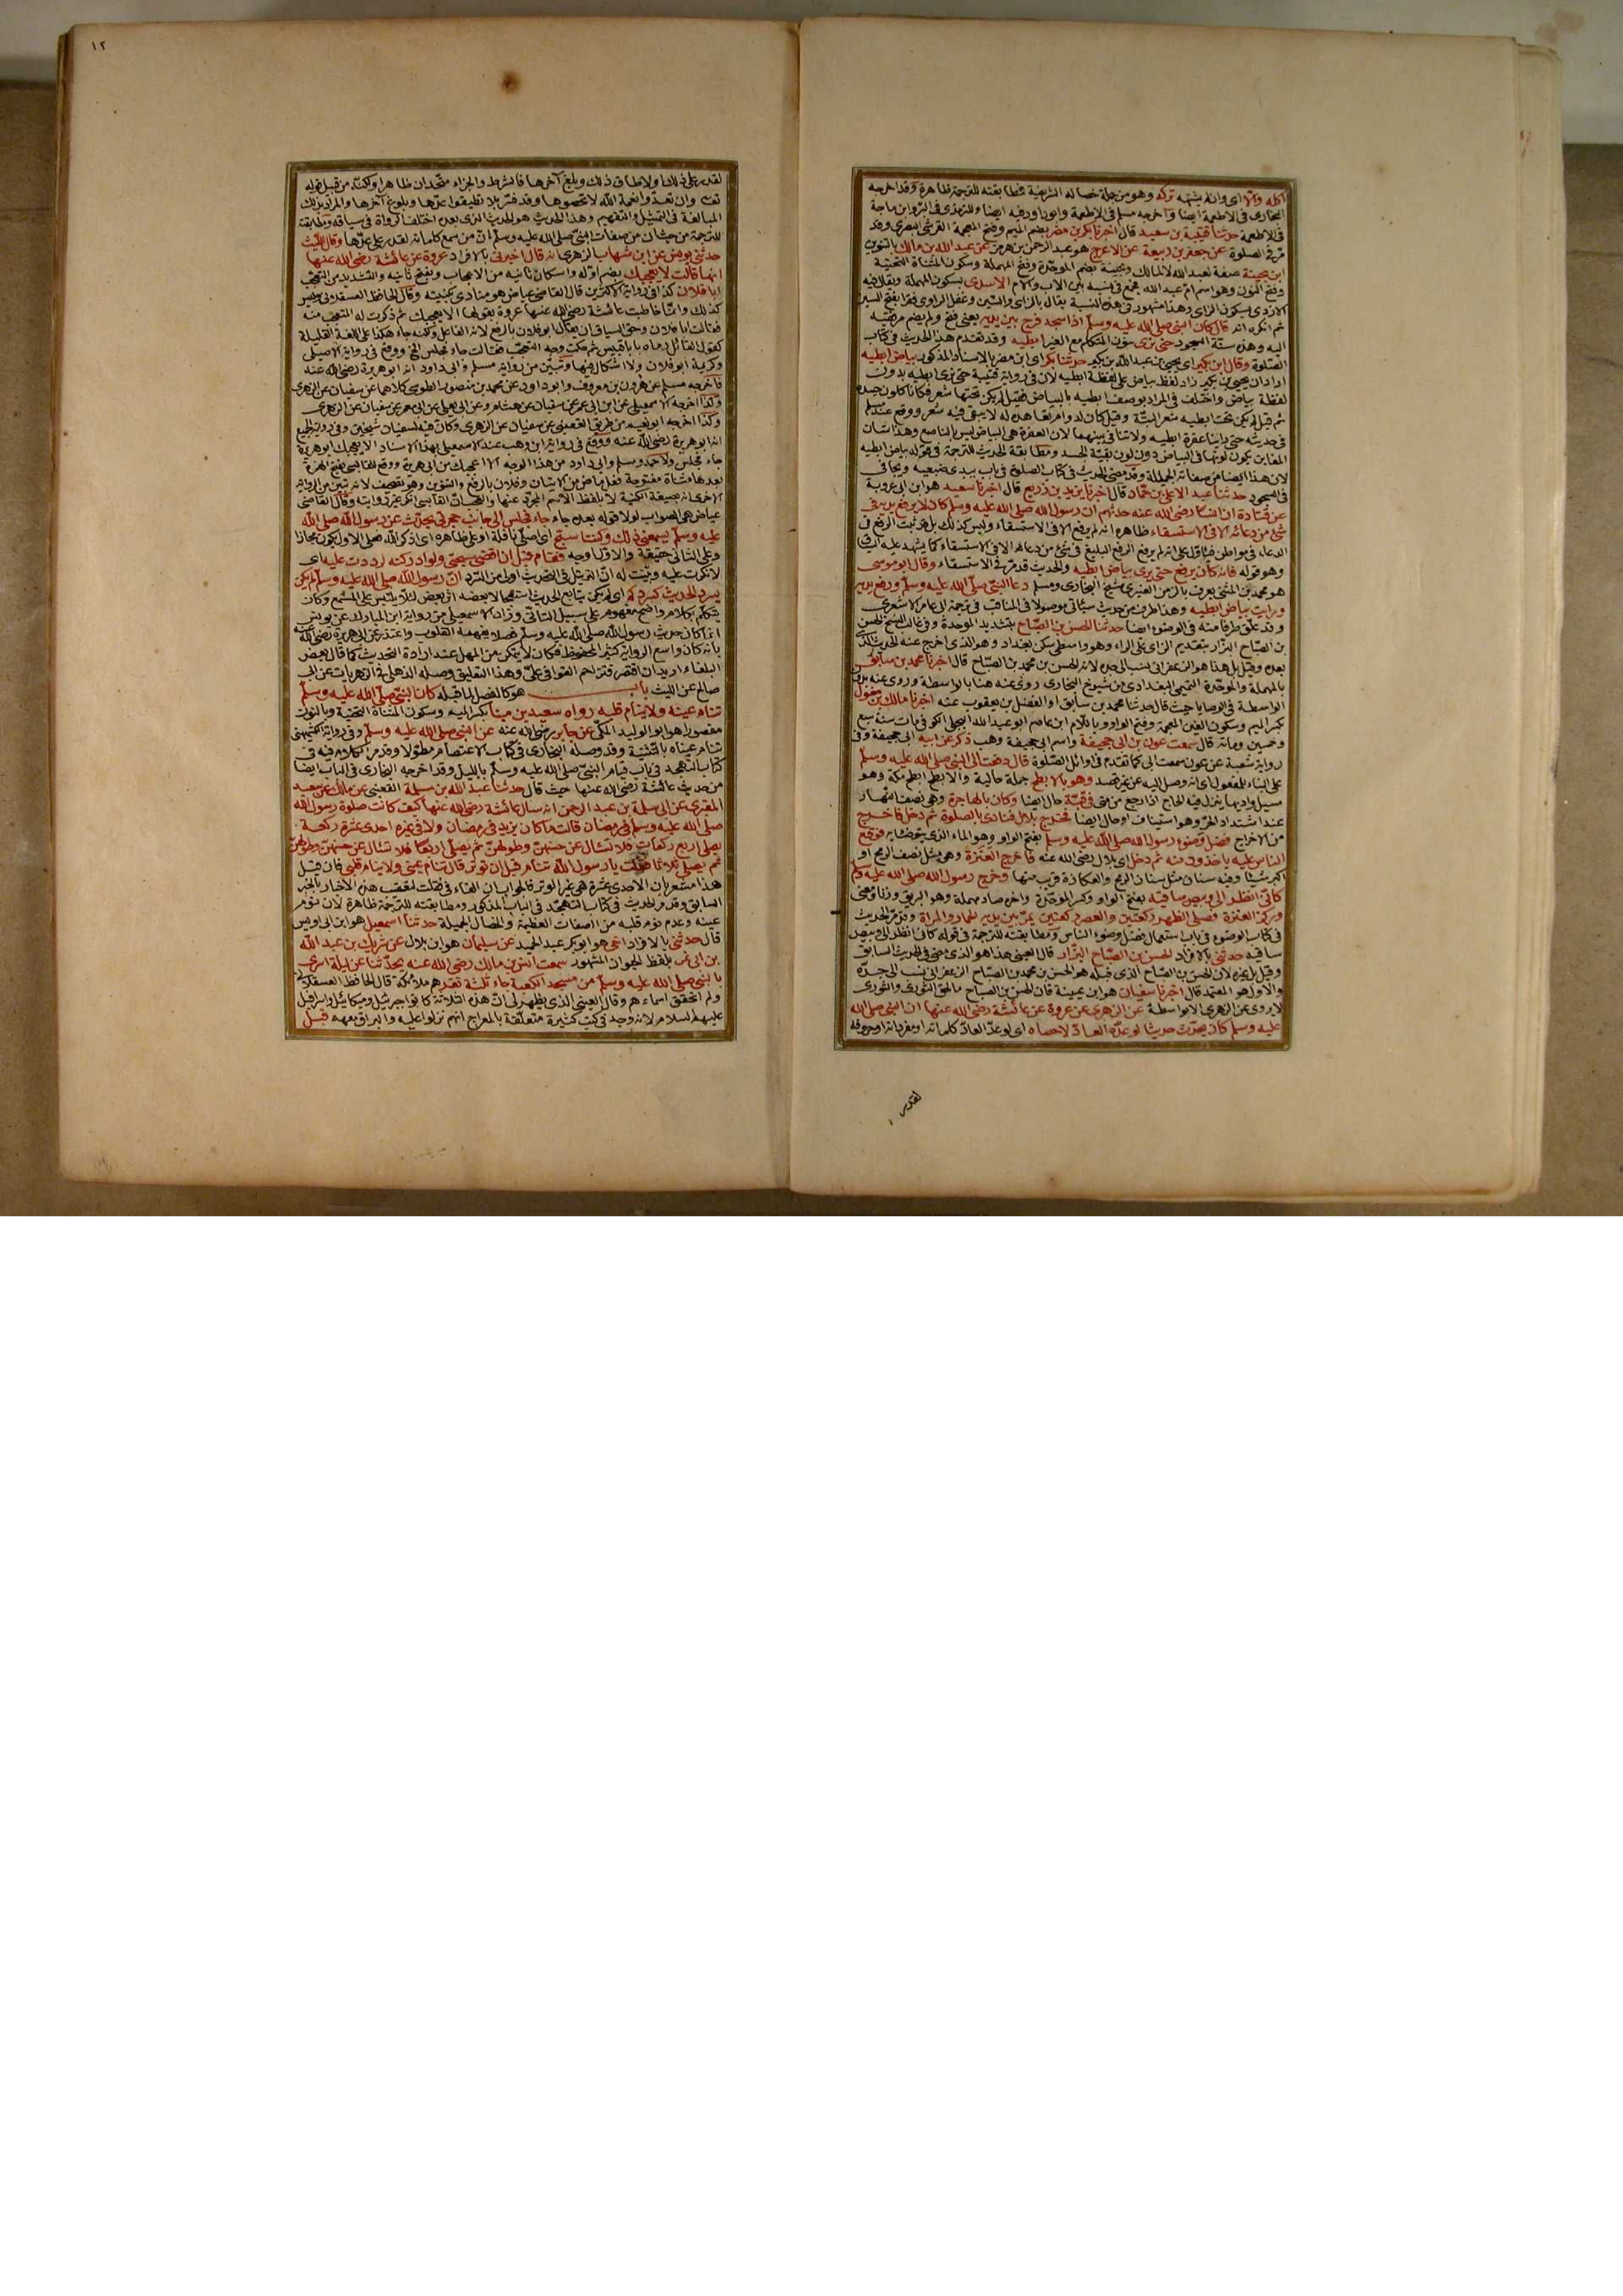 اكله والا اى وان لم يشتهه تركه وهو من جملة خصاله الشريفة مطابقته للترجمة ظاهرة وقد اخرجه
البخارى فى الاطعمة ايضا وآخرجه مسلم فى الاطعمة وابو داود فيه ايضا والترمذى فى البر وابن ماجة
فى الاطعمة حدثنا قتيبة بن سعيد قال اخبرنا بكر بن مضر بضم الميم وفتح المعجمة القرشى البصرى وقد
مر فى الصلوة عن جعفر بن ربيعة عن الاعرج هو عبد الرحمن بن هرمز عن عبد الله بن مالك بالتنوين
ابن بحينة صفة لعبد الله لا لمالك وبحينة بضم الموحدة وفتح المهملة وسكون المثناة التحتية
وفتح النون وهو اسم ام عبد الله جمع فى نسبه بين الاب والام الاسدى بسكون المهملة ويقال فيه
الازدى بسكون الزاى وهذا مشهور فى هذه النسبة يقال بالزاى والسين وغفل الراوى فقرا بفتح السين
ثم انكره انه قال كان النبى صلى الله عليه وسلم اذا سجد فرج بين يديه يعنى فتح ولم يضم مرفقيه
اليه وهذه سنة السجود حتى نرى بنون المتكلم مع الغير ابطيه وقد تقدم هذا الحديث فى كتاب
الصلوة وقال ابن بكير اى يحيى بن عبد الله بن بكير حدثنا بكر اى ابن مضر بالاسناد المذكور بياض ابطيه
اراد ان يحيى بن بكير زاد لفظ بياض على لفظة ابطيه لان فى رواية قتيبة حتى نرى ابطيه بدون
لفظة بياض واختلف فى المراد بوصف ابطيه بالبياض فقيل لم يكن تحتها شعر فكانا كلون جسده
ثم قيل لم يكن تحت ابطيه شعر البتة وقيل كان لدوام تعاهده له لا يبقى فيه شعر ووقع عند مسلم
فى حديثه حتى راينا عفرة ابطيه ولا تنافى بينهما لان العفرة هى البياض ليس بالناصع وهذا شان
المغابن يكون لونها فى البياض دون لون بقية الجسد ومطابقة الحديث للترجمة فى قوله بياض ابطيه
لان هذا ايضا من صفاته الجميلة وقد مضى الحديث فى كتاب الصلوة فى باب يبدى ضبعيه ويجافى
فى السجود حدثنا عبد الاعلى بن حماد قال اخبرنا يزيد بن زريع قال اخبرنا سعيد هو ابن ابى عروبة
عن قتادة ان انسا رضى الله عنه حدثهم ان رسول الله صلى الله عليه وسلم كان لا يرفع يديه فى
شئ من دعائه الا فى الاستسقاء ظاهره انه لم يرفع الا فى الاستسقاء وليس كذلك بل قد ثبت الرفع فى
الدعاء فى مواطن فيئاول على انه لم يرفع الرفع البليغ فى شئ من دعائه الا فى الاستسقاء كما يشهد عليه
وهو قوله فانه كان يرفع حتى يرى بياض ابطيه والحديث قد مر فى الاستسقاء وقال ابو موسى
هو محمد بن المثنى يعرف بالزمن العنزى شيخ البخارى ومسلم دعا النبى صلى الله عليه وسلم ورفع يديه
ورايت بياض ابطيه وهذا طرف من حديث سيئاتى موصولا فى المناقب فى ترجمة ابى عامر الاشعرى
وقد علق طرفا منه فى الوضوء ايضا حدثنا الحسن بن الصباح بتشديد الموحدة وفى غالب النسخ الحسن
بن الصباح البزار بتقديم الزاى على الراء وهو واسطى سكن بغداد وهو الذى اخرج عنه الحديث الذى
بعده وقيل بل هذا هو الزعفرانى نسب الى جده لانه الحسن بن محمد بن الصباح قال اخبرنا محمد بن سابق
بالمهملة والموحدة التميمى البغدادى من شيوخ البخارى روى عنه هنا بالواسطة وروى عنه بدون
الواسطة فى الوصايا حيث قال حدثنا محمد بن سابق او الفضل بن يعقوب عنه اخبرنا مالك بن مغول
بكسر الميم وسكون الغين المعجمة وفتح الواو وباللام ابن عاصم ابو عبد الله البجلى الكوفى مات سنة سبع
وخمسين ومائة قال سمعت عون بن ابى جحيفة واسم ابى جحيفة وهب ذكر عن ابيه ابى جحيفة وفى
رواية شعبة عن عون سمعت ابى كما تقدم فى اوائل الصلوة قال دفعت الى النبى صلى الله عليه وسلم
على البناء للمفعول اى انه وصل اليه عن غير قصد وهو بالابطح جملة حالية والابطح ابطح مكة وهو
مسيل واديها ينزل فيه الحاج اذا رجع من منى فى قبة حال ايضا وكان بالهاجرة وهى نصف النهار
عند اشتداد الحر وهو استيناف او حال ايضا فخرج بلال فنادى بالصلوة ثم دخل فاخرج
من الاخراج فضل وضوء رسول الله صلى الله عليه وسلم بفتح الواو وهو الماء الذى يتوضئا به فوقع
الناس عليه ياخذون منه ثم دخل اى بلال رضى الله عنه فاخرج العنزة وهى مثل نصف الرمح او
اكبر شيئا وفيه سنان مثل سنان الرمح والعكازة قريب منها وخرج رسول الله صلى الله عليه وسلم
كانى انظر الى وبيص ساقيه بفتح الواو وكسر الموحدة واخره صاد مهملة وهو البريق وزنا ومعنى
وركز العنزة فصلى الظهر ركعتين والعصر ركعتين يمر بين يديه الحمار والمراة وقد مر الحديث
فى كتاب الوضوء فى باب استعمال فضل وضوء الناس ومطابقته للترجمة فى قوله كانى انظر الى وبيص
ساقيه حدثنى بالافراد الحسن بن الصباح البزار قال العينى هذا هو الذى مضى فى الحديث السابق
وقيل بل غيره لان الحسن بن الصباح الذى قبله هو الحسن بن محمد بن الصباح الزعفرانى نسب الى جده
والاول هو المعتمد قال اخبرنا سفيان هو ابن عيينة فان الحسن بن الصباح ما لحق الثورى والثورى
لا يروى عن الزهرى الا بواسطة عن الزهرى عن عروة عن عائشة رضى الله عنها ان النبى صلى الله
عليه وسلم كان يحدث حديثا لو عده العاد لاحصاه اى لو عد العاد كلماته او مفرداته او حروفه
لقدر
١٢
لقدر على ذلك ولاطاق ذلك وبلغ آخرها فالشرط والجزاء متحدان ظاهرا ولكنه من قبيل قوله
تعالى وان تعدوا نعمة الله لا تحصوها وقد فسر بلا تطيقوا عدها وبلوغ آخرها والمراد بذلك
المبالغة فى الترتيل والتفهيم وهذا الحديث هو الحديث الذى بعده اختلف الرواة فى سياقه ومطابقة
للترجمة من حيث ان من صفات النبى صلى الله عليه وسلم ان من سمع كلماته لقدر على عدها وقال الليث
حدثنى يونس عن ابن شهاب الزهرى انه قال اخبرنى بالافراد عروة عن عائشة رضى الله عنها
انها قالت الا يعجبك بضم اوله واسكان ثانيه من الاعجاب وبفتح ثانيه والتشديد من التعجيب
ابا فلان كذا فى رواية الاكثرين قال القاضى عياض هو منادى بكنيته وقال الحافظ العسقلانى ليس
كذلك وانما خاطبت عائشة رضى الله عنها عروة بقولها الا يعجبك ثم ذكرت له المتعجب منه
فقالت ابا فلان وحق السياق ان يقال ابو فلان بالرفع لانه الفاعل ولكنه جاء هكذا على اللغة القليلة
كقول القائل رماه بابا قبيس ثم حكت وجه التعجب فقالت جاء فجلس الخ ووقع فى رواية الاصيلى
وكريمة ابو فلان ولا اشكال فيها وتبين من رواية مسلم وابى داود انه ابو هريرة رضى الله عنه
فاخرجه مسلم عن هرون بن معروف وابو داود عن محمد بن منصور الطوسى كلاهما عن سفيان عن الزهرى
وكذا اخرجه الاسمعيلى عن ابن ابى عمر عن سفيان عن هشام وعن ابى يعلى عن ابى معمر عن سفيان عن الزهرى
وكذا اخرجه ابو نعيم من طريق القعنبى عن سفيان عن الزهرى وكان فيه لسفيان شيخين وفى رواية الجميع
انه ابو هريرة رضى الله عنه ووقع فى رواية ابن وهب عند الاسمعيلى بهذا الاسناد الا يعجبك ابو هريرة
جاء فجلس ولاحمد ومسلم وابى داود من هذا الوجه الا اعجبك من ابى هريرة ووقع للقابسى بفتح الهمزة
بعدها مثناة مفتوحة فعل ماض من الاتيان وفلان بالرفع والتنوين وهو تصحيف لانه تبين من الرواية
الاخرى انه بصيغة الكنية لا بلفظ الاسم المجرد عنها والعجب ان القابسى انكر عين روايته وقال القاضى
عياض هى الصواب لولا قوله بعده جاء جاء فجلس الى جانب حجرتى يحدث عن رسول الله صلى الله
عليه وسلم يسمعنى ذلك وكنت اسبح اى اصلى نافلة او على ظاهره اى اذكر الله فعلى الاول يكون مجازا
وعلى الثانى حقيقة والاول اوجه فقام قبل ان اقضى سبحتى ولو ادركته لرددت عليه اى
لانكرت عليه وبينت له ان الترتيل فى التحديث اولى من السرد ان رسول الله صلى الله عليه وسلم لم يكن
يسرد الحديث كسردكم اى لم يكن يتابع الحديث استعجالا بعضه اثر بعض لئلا يلتبس على المستمع وكان
يتكلم بكلام واضح مفهوم على سبيل التانى وزاد الاسمعيلى من رواية ابن المبارك عن يونس
انما كان حديث رسول الله صلى الله عليه وسلم فصلا يفهمه القلوب واعتذر عن ابى هريرة رضى الله عنه
بانه كان واسع الرواية كثير المحفوظ فكان لا يتمكن من المهل عند ارادة التحديث كما قال بعض
البلغاء اريد ان اقتصر فتزاحم القوافى على وهذا التعليق وصله الذهلى فى الزهريات عن ابى
صالح عن الليث باب هو كالفصل لما قبله كان النبى صلى الله عليه وسلم
تنام عينه ولا ينام قلبه رواه سعيد بن مينا بكسر الميم وسكون المثناة التحتية وبالنون
مقصورا هو ابو الوليد المكى عن جابر رضى الله عنه عن النبى صلى الله عليه وسلم وفى رواية الكشميهنى
تنام عيناه بالتثنية وقد وصله البخارى فى كتاب الاعتصام مطولا وقد مر الكلام فيه فى
كتاب التهجد فى باب قيام النبى صلى الله عليه وسلم بالليل وقد اخرجه البخارى فى الباب ايضا
من حديث عائشة رضى الله عنها حيث قال حدثنا عبد الله بن مسلمة القعنبى عن مالك عن سعيد
المقبرى عن ابى سلمة بن عبد الرحمن انه سال عائشة رضى الله عنها كيف كانت صلوة رسول الله
صلى الله عليه وسلم فى رمضان قالت ما كان يزيد فى رمضان ولا فى غيره احدى عشرة ركعة
يصلى اربع ركعات فلا تسئال عن حسنهن وطولهن ثم يصلى اربعا فلا تسئال عن حسنهن وطولهن
ثم يصلى ثلاثا فقلت يا رسول الله تنام قبل ان توتر قال تنام عينى ولا ينام قلبى فان قيل
هذا مشعر بان الاحدى عشرة هى غير الوتر فالجواب ان الفاء فى فقلت لتعقيب هذه الاخبار بالخبر
السابق وقد مر الحديث فى كتاب التهجد فى الباب المذكور ومطابقته للترجمة ظاهرة لان نوم
عينه وعدم نوم قلبه من الصفات العظيمة والخصال الجميلة حدثنا اسمعيل هو ابن ابى اويس
قال حدثنى بالافراد اخى هو ابو بكر عبد الحميد عن سليمان هو ابن بلال عن شريك بن عبد الله
بن ابى نمر بلفظ الحيوان المشهور سمعت انس بن مالك رضى الله عنه يحدثنا عن ليلة اسرى
بالنبى صلى الله عليه وسلم من مسجد الكعبة جاء ثلثة نفر هم ملائكة قال الحافظ العسقلانى
ولم اتحقق اسماءهم وقال العينى الذى يظهر لى ان هذه الثلاثة كانوا جبرئيل وميكائيل واسرافيل
عليهم السلام لانه وجد فى كتب كثيرة متعلقة بالمعراج انهم نزلوا عليه والبراق معهم قبل